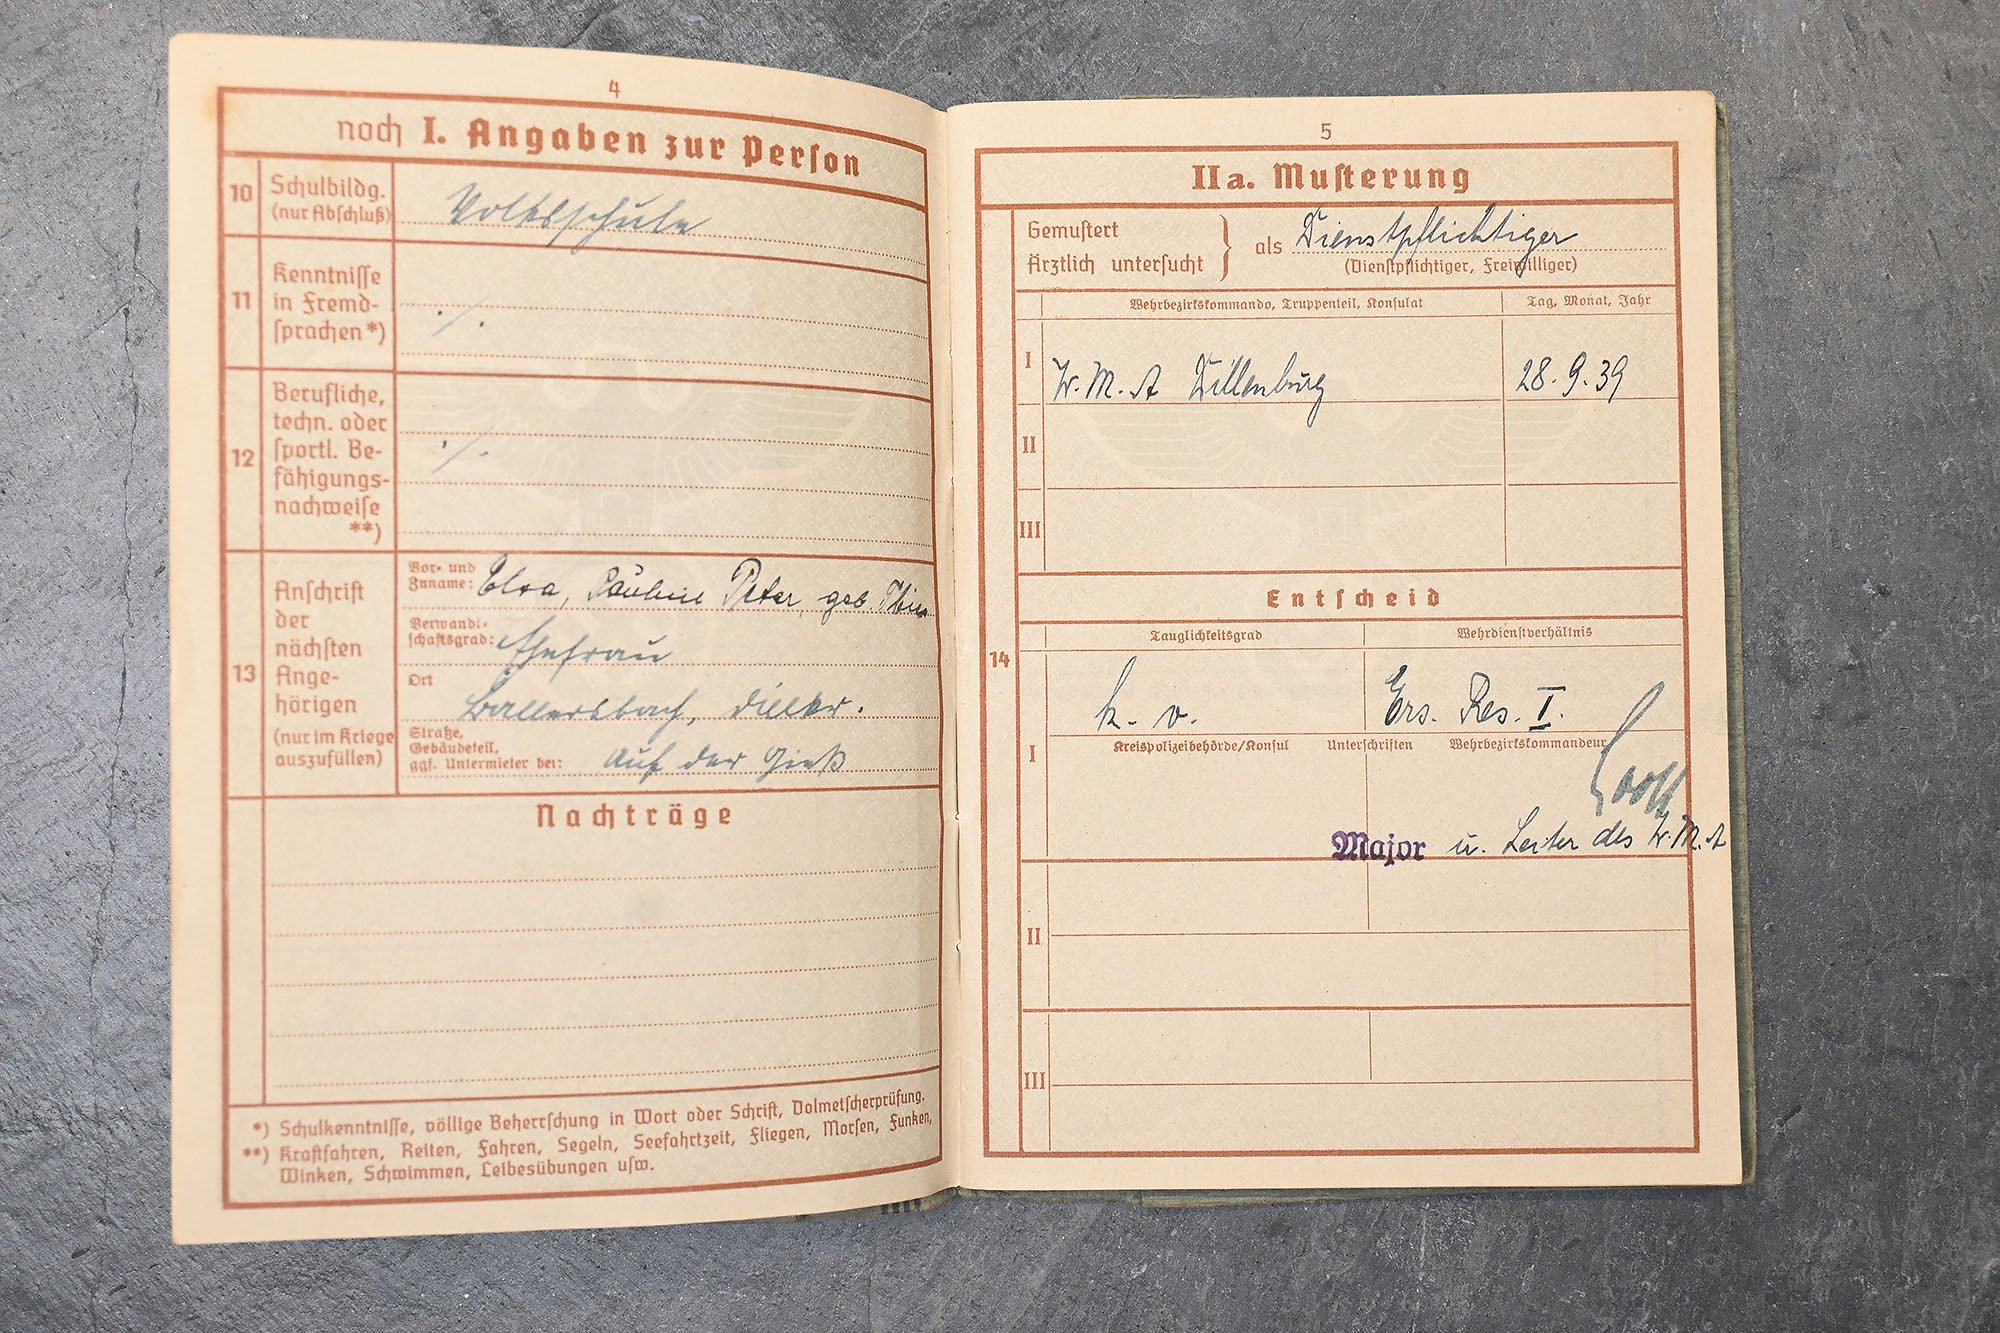 4
noch I. Angaben zur Person
10 Schulbildg. (nur Abschluß) Volksschule
11 Kenntnisse in Fremd-
sprachen *) ·/.
12 Berufliche,
techn. oder
sportl. Be-
fähigungs-
nachweise
**) ·/.
13 Anschrift
der
nächsten
Ange-
hörigen
(nur im Kriege
auszufüllen)
Vor- und
Zuname: Pauline Peter, geb.
Verwandt-
schaftsgrad: Ehefrau
Ort
Ballersbach, Dillkr.
Straße,
Gebäudeteil,
ggf. Untermieter bei: Auf der
Nachträge
*) Schulkenntnisse, völlige Beherrschung in Wort oder Schrift, Dolmetscherprüfung.
**) Kraftfahren, Reiten, Fahren, Segeln, Seefahrtzeit, Fliegen, Morsen, Funken,
Winken, Schwimmen, Leibesübungen usw.
5
IIa. Musterung
Gemustert
Ärztlich untersucht } als Dienstpflichtiger
(Dienstpflichtiger, Freiwilliger)
Wehrbezirkskommando, Truppenteil, Konsulat Tag, Monat, Jahr
I W.M.A Dillenburg 28.9.39
II
III
Entscheid
14
Tauglichkeitsgrad Wehrdienstverhältnis
I k.v. Ers. Res. I.
Kreispolizeibehörde/Konsul Unterschriften Wehrbezirkskommandeur
Major u. Leiter des W.M.A
II
III